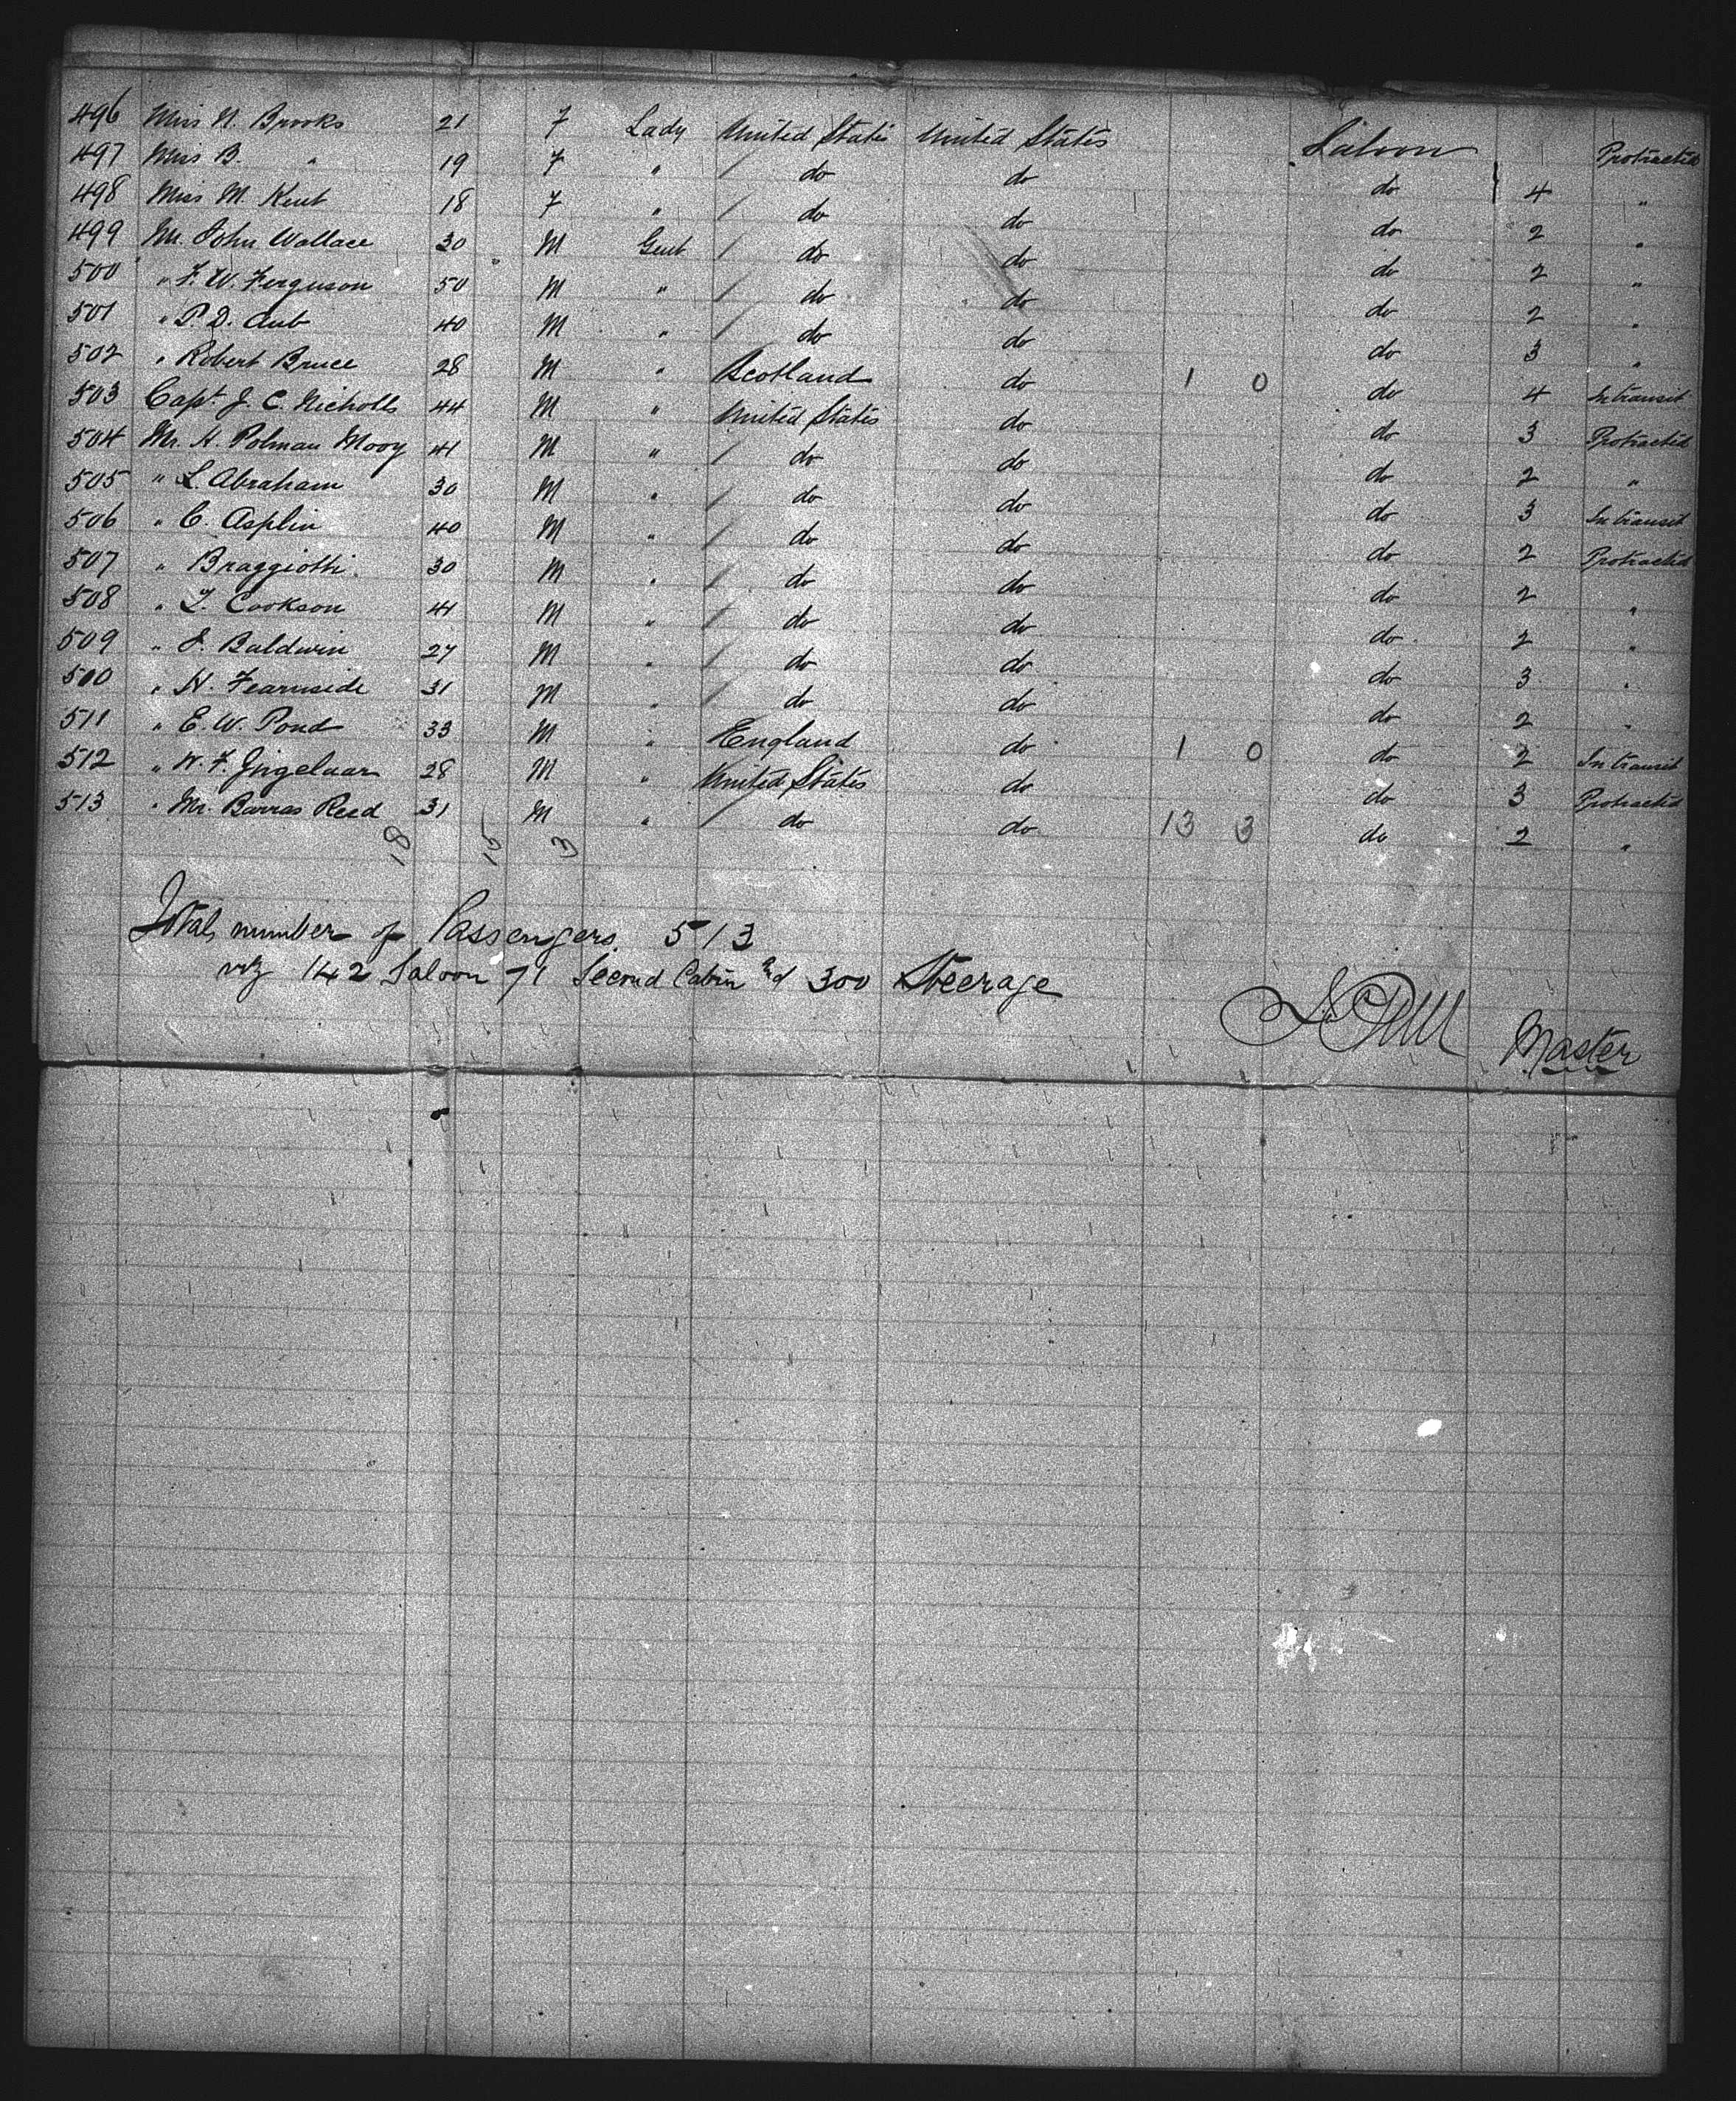 496 Miss N. Brooks 21 F Lady United States United States Saloon Protracted
497 Miss B. " 19 F " / do do do 4 "
498 Miss M. Kent 18 F " / do do do 2 "
499 Mr. John Wallace 30 M Gent / do do do 2 "
500 " F. W. Ferguson 50 M " / do do do 2 "
501 " P. D. Aub 40 M " / do do do 3 "
502 " Robert Bruce 28 M " Scotland do 1 0 do 4 In transit
503 Capt. J. C. Nicholls 44 M " United States do do 3 Protracted
504 Mr. H. Polman Mooy 41 M " / do do do 2 "
505 " L. Abraham 30 M " / do do do 3 In transit
506 " C. Asplin 40 M " / do do do 2 Protracted
507 " Braggiotti 30 M " / do do do 2 "
508 " T. Cookson 41 M " / do do do 2 "
509 " J. Baldwin 27 M " / do do do 3 "
500 " H. Fearnside 31 M " / do do do 2 "
511 " E. W. Pond 33 M " England do 1 0 do 2 In transit
512 " W. F. Jngelaar 28 M " United States do do 3 Protracted
513 " Mr. Barras Reed 31 M " / do do 13 3 do 2 "
18 15 3
Total number of Passengers 513
viz 142 Saloon 71 Second Cabin and 300 Steerage
Master